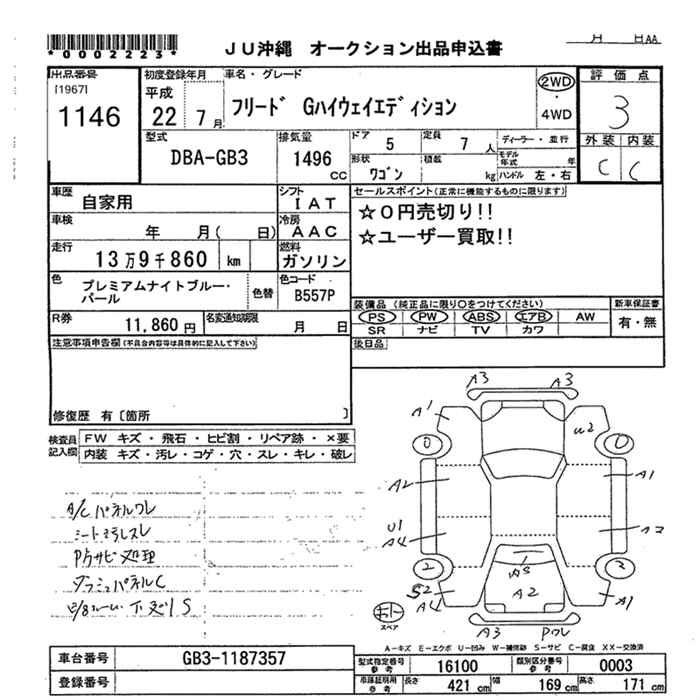 *0002223*
JU沖縄 オークション出品申込書
月 日AA
出品番号
[1967]
1146
初度登録年月
平成
22年7月
車名・グレード
フリード Gハイウェイエディション
2WD
・
4WD
評価点
3
外装 内装
C C
型式
DBA-GB3
排気量
1496
CC
ドア
5
定員
7人
ディーラー・並行
モデル年式 年
形状
ワゴン
積載
kg
ハンドル 左・右
車歴
自家用
シフト
IAT
車検
年 月( 日)
冷房
AAC
走行
13万9千860 km
燃料
ガソリン
色
プレミアムナイトブルー・
パール
色替
色コード
B557P
R券
11,860円
名変通知期限
月 日
セールスポイント(正常に機能するものに限ります)
☆0円売切り!!
☆ユーザー買取!!
装備品(純正品に限り〇をつけてください)
PS PW ABS エアB AW
SR ナビ TV カワ
新車保証書
有・無
後日品
注意事項申告欄(不具合内容等は具体的に記入して下さい)
修復歴 有[箇所 ]
検査員
記入欄
FW キズ・飛石・ヒビ割・リペア跡・×要
内装 キズ・汚レ・コゲ・穴・スレ・キレ・破レ
A/Cパネルワレ
シート汚レスレ
下廻りS
A3 A3
A1
U2
0 0
A2 A1
U1
A4
A3
2 2
A5
A2
S2
A4
A1
A3 Pワレ
スペア
A-キズ E-エクボ U-凹み W-補修跡 S-サビ C-腐食 XX-交換済
車台番号
GB3-1187357
登録番号
型式指定番号
参考
16100
類別区分番号
参考
0003
車庫証明用
参考
長さ
421cm
幅
169cm
高さ
171cm